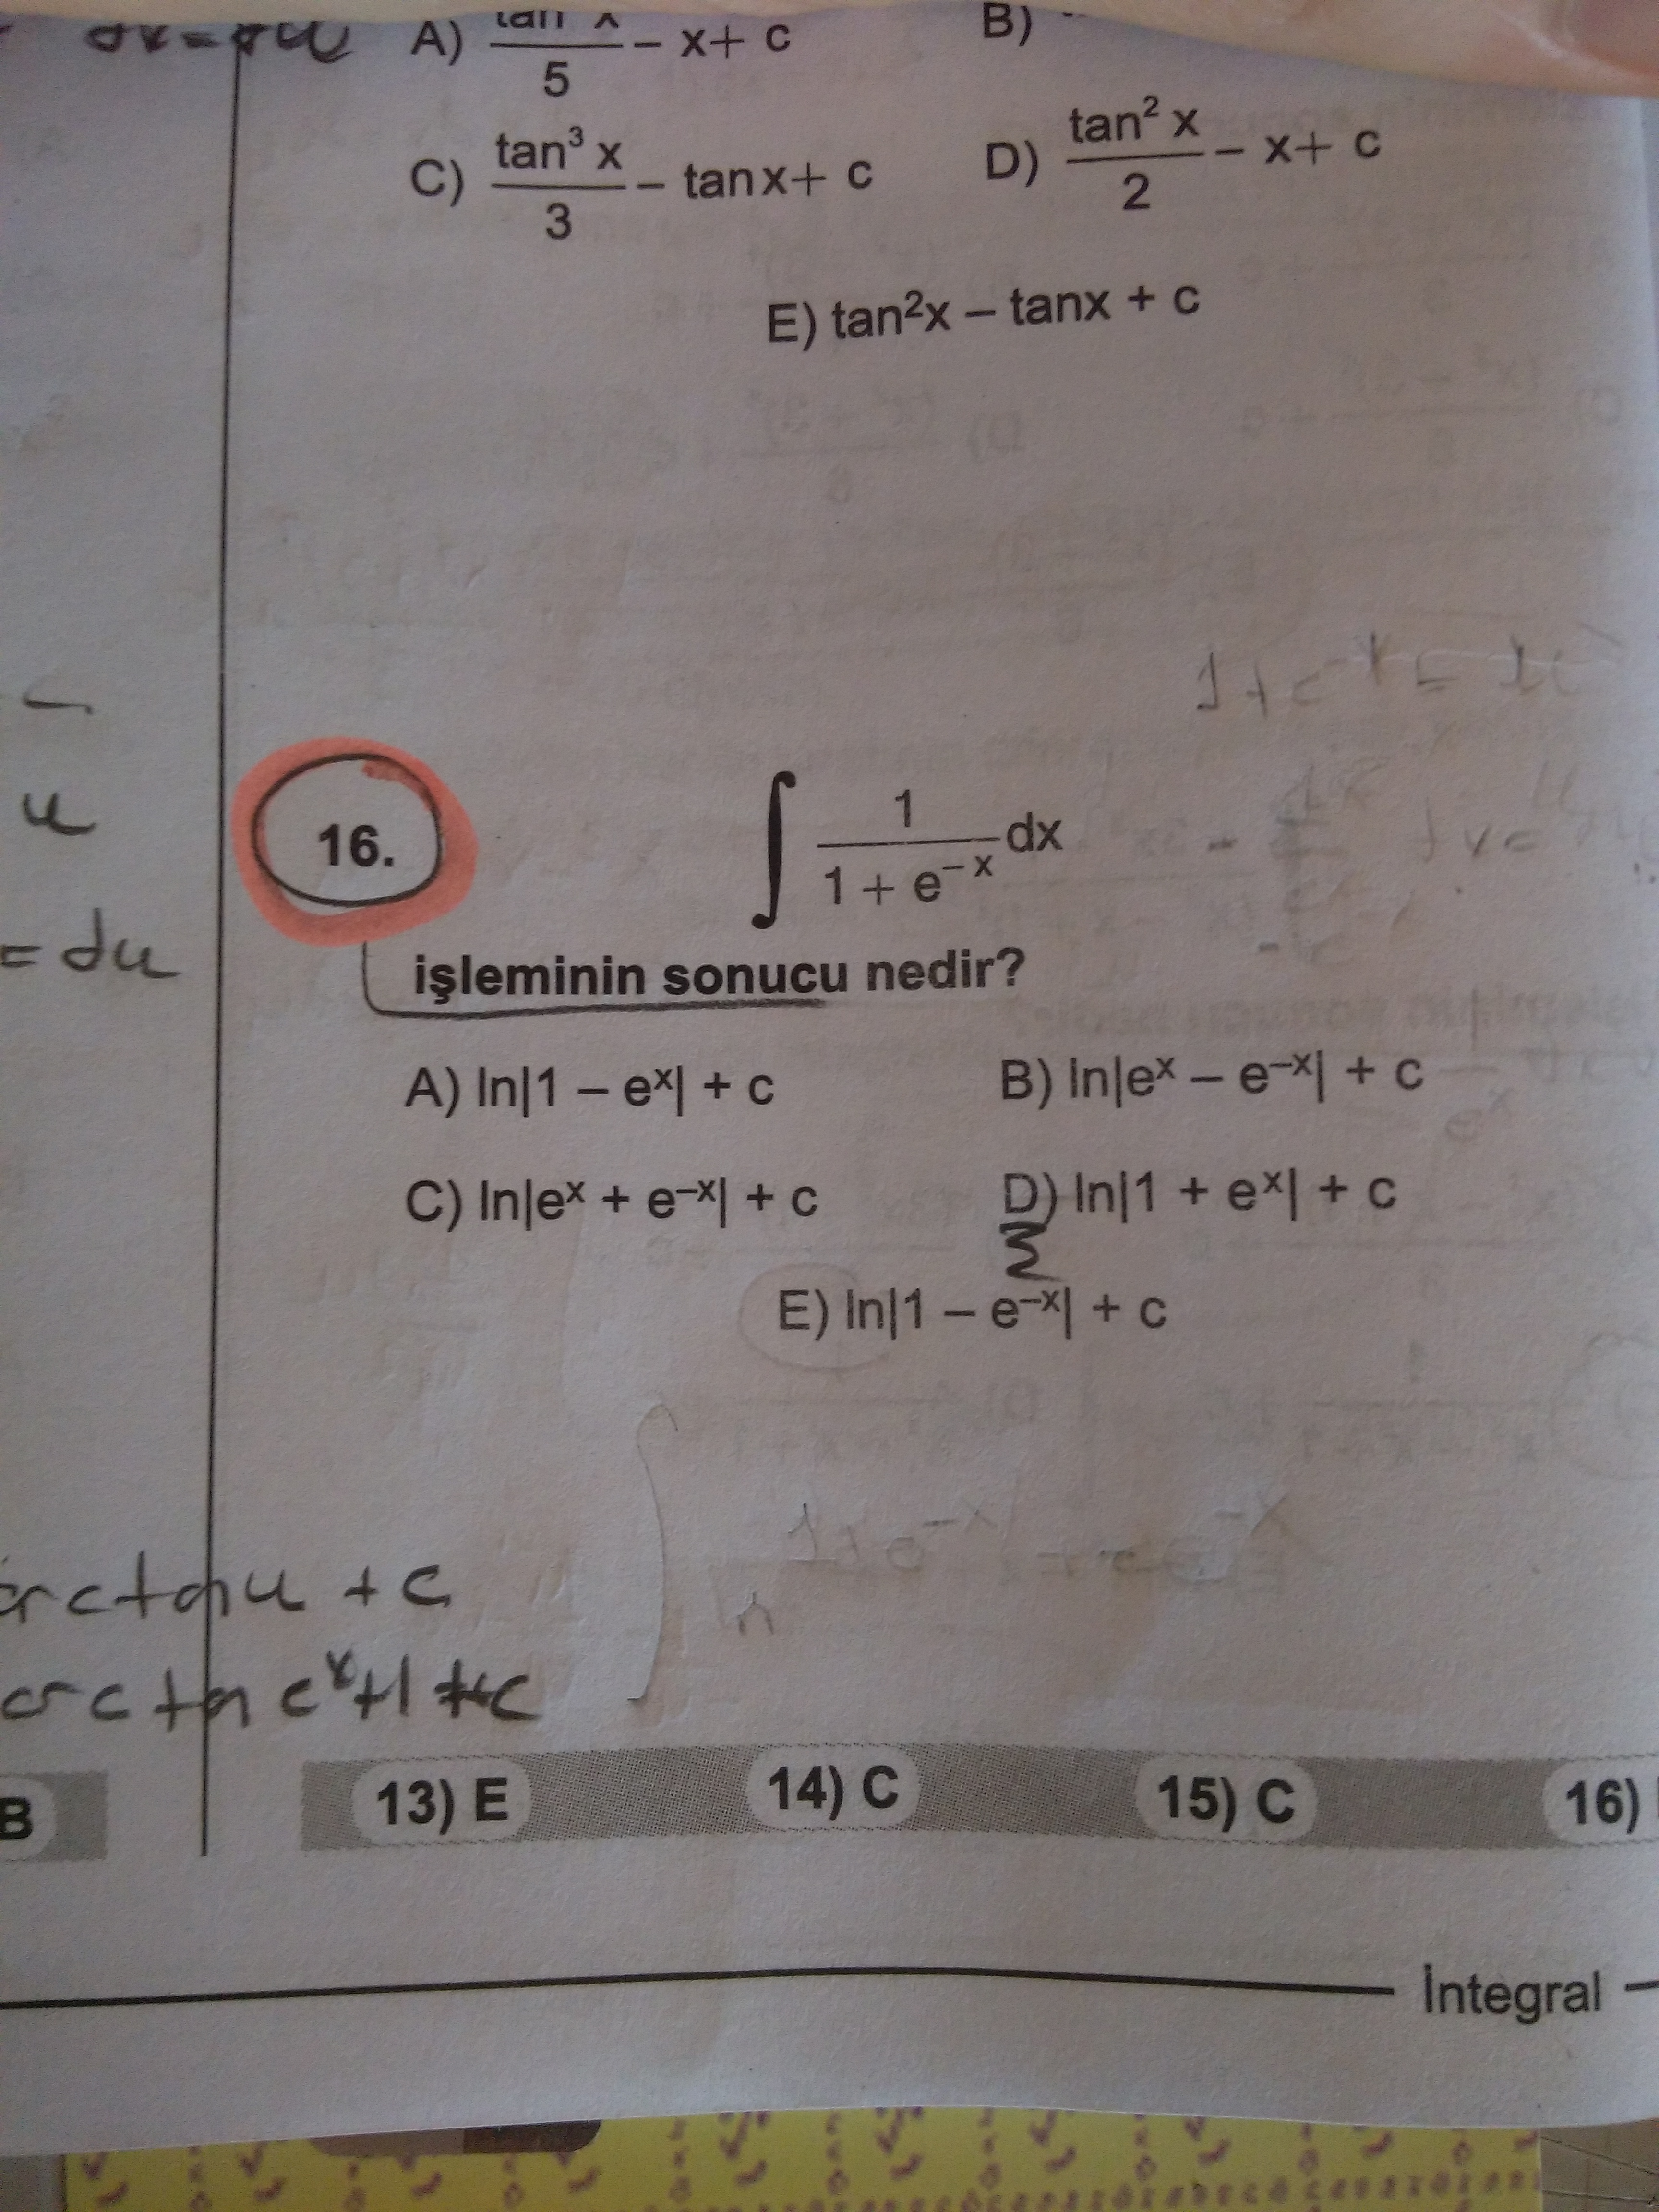 dx = du
A) tan x / 5 – x + c
B)
C) tan³ x / 3 – tanx + c
D) tan² x / 2 – x + c
E) tan²x – tanx + c
u
= du
16.
∫ 1 / (1 + e⁻ˣ) dx
işleminin sonucu nedir?
A) ln|1 – eˣ| + c
B) ln|eˣ – e⁻ˣ| + c
C) ln|eˣ + e⁻ˣ| + c
D) ln|1 + eˣ| + c
E) ln|1 – e⁻ˣ| + c
arctanu + c
arctan eˣ+1 + c
B
13) E
14) C
15) C
16)
İntegral